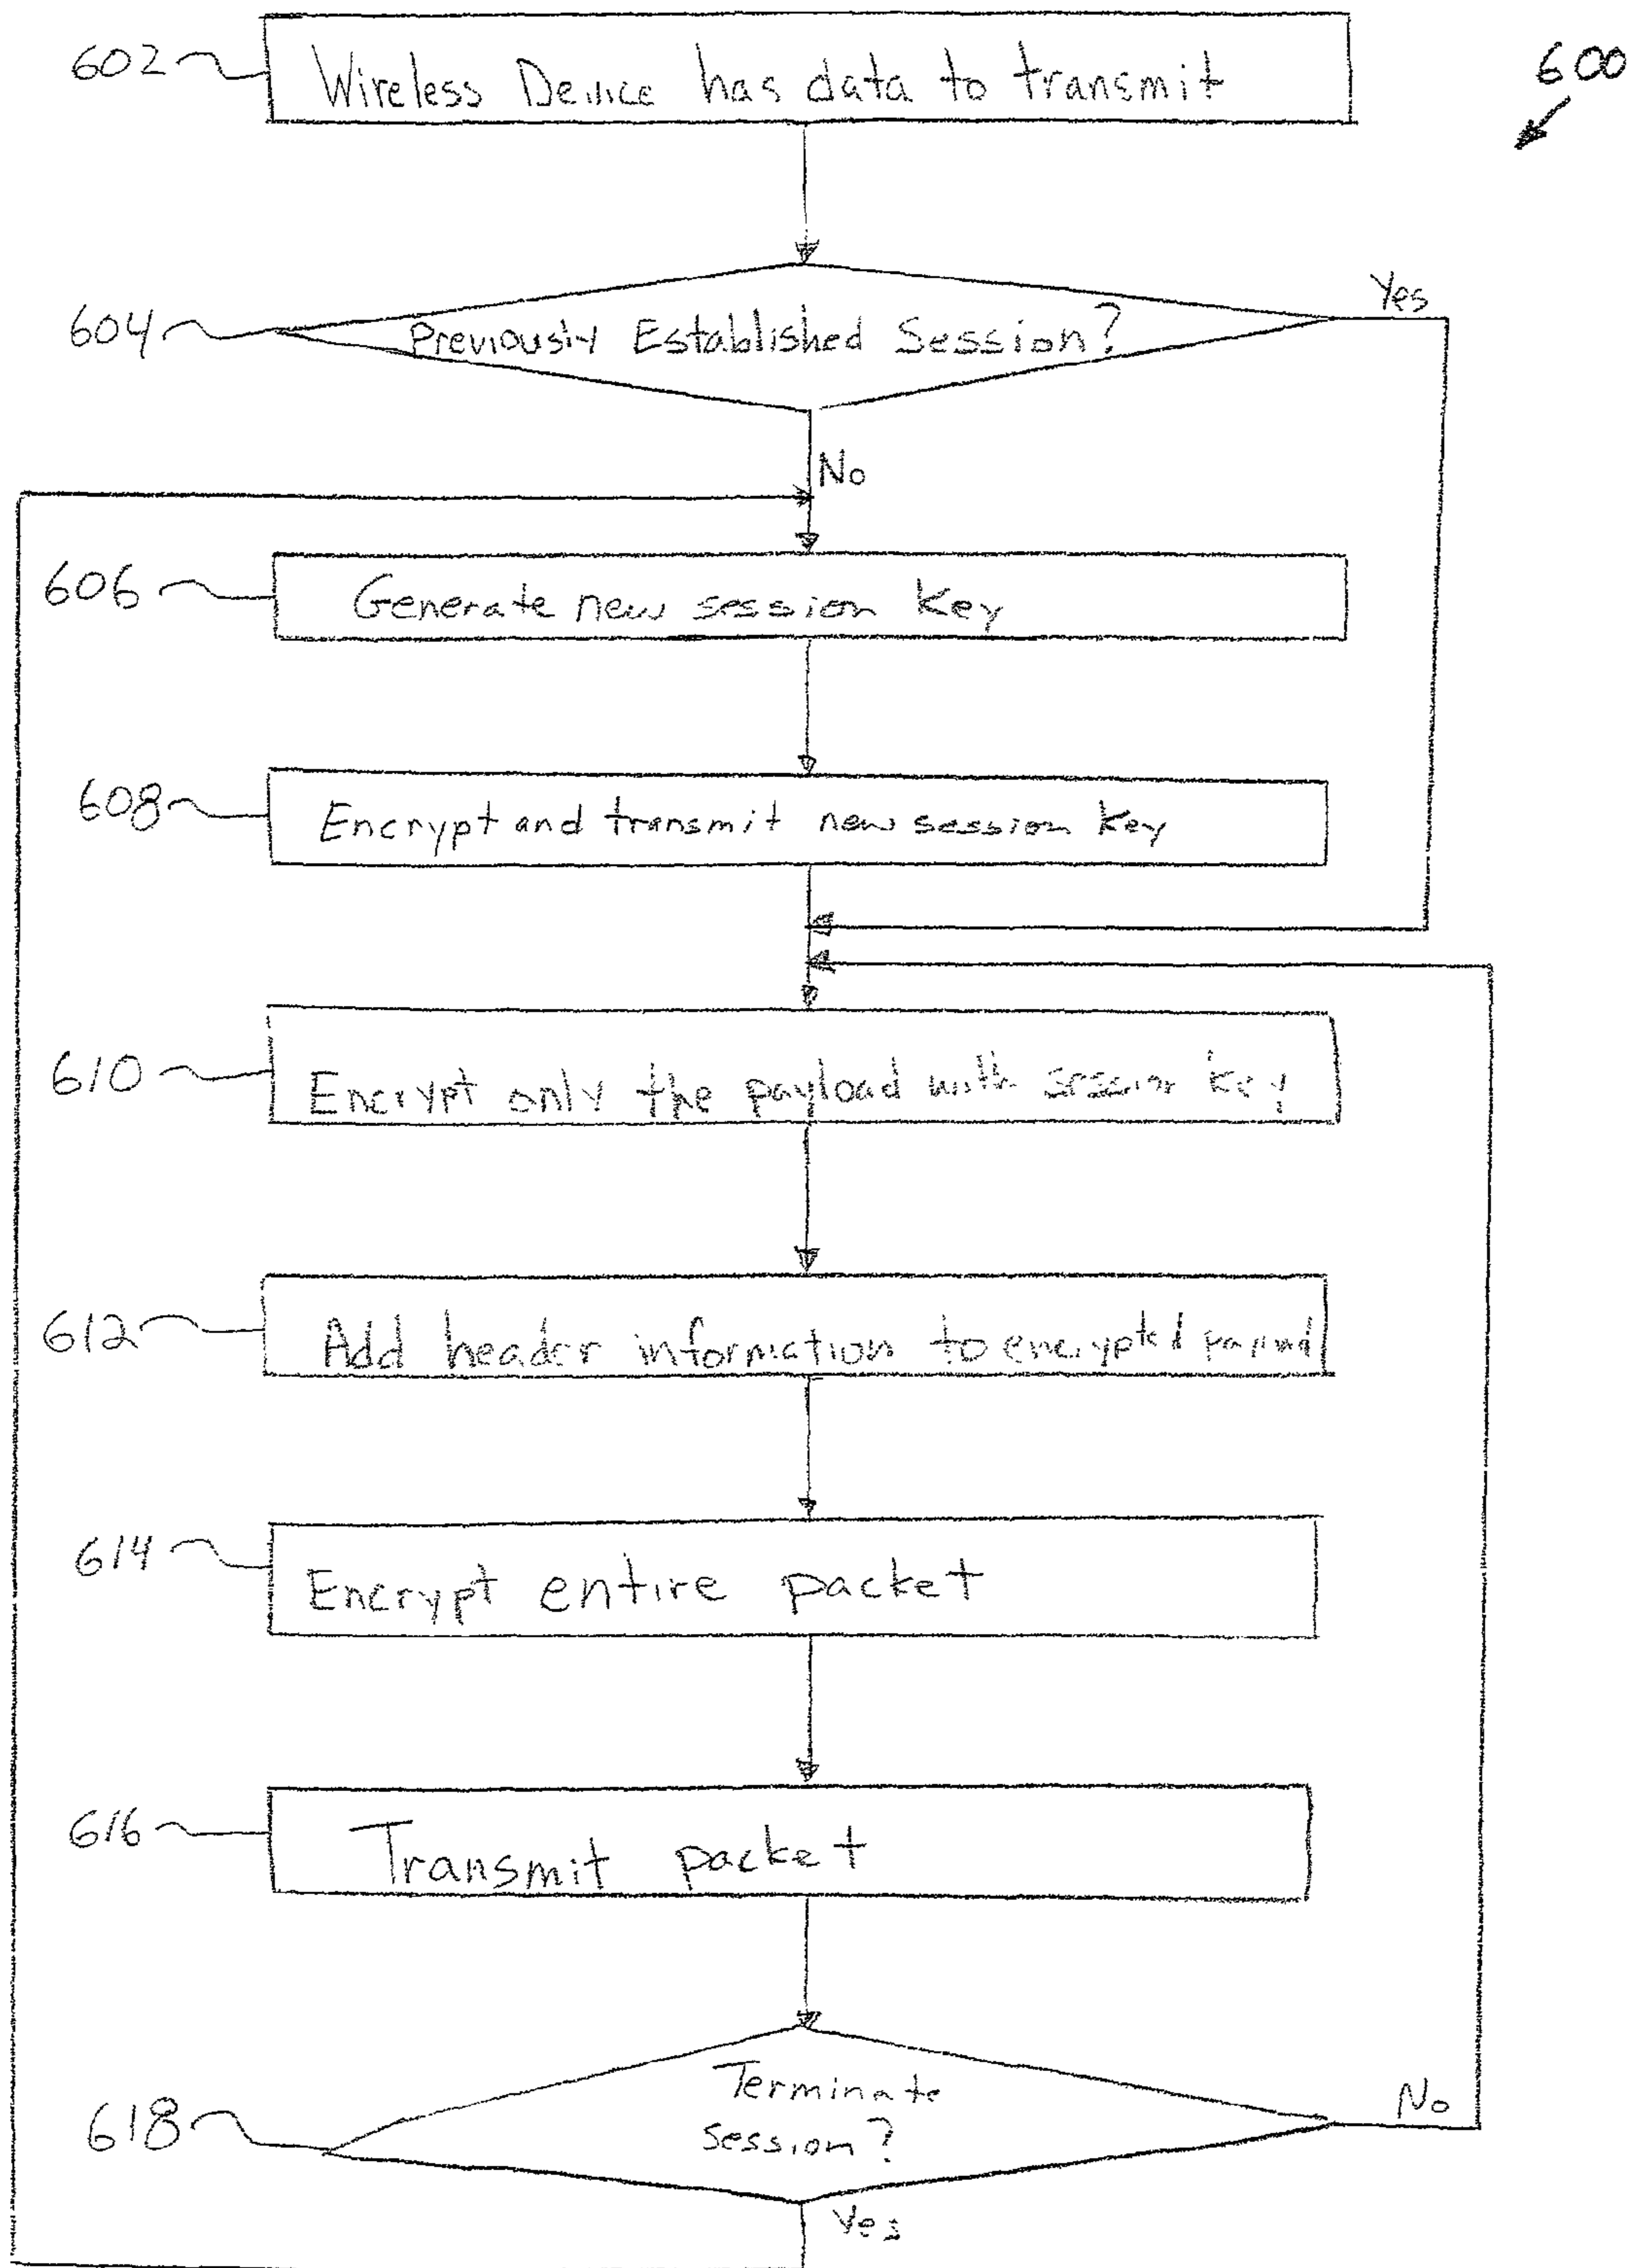 600
602 Wireless Device has data to transmit
604 Previously Established Session?
Yes
No
606 Generate new session key
608 Encrypt and transmit new session key
610 Encrypt only the payload with session key
612 Add header information to encrypted payload
614 Encrypt entire packet
616 Transmit packet
618 Terminate
session?
No
Yes